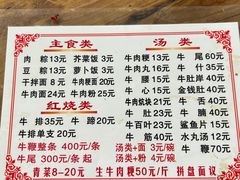 主食类
肉粽13元 芥菜饭3元
豆粽13元 萝卜饭3元
干拌面8元 牛肉粳面20元
牛肉面24元 牛肉粉25元
红烧类
牛排35元 牛蹄20元
牛排单支20元
牛鞭整条400元/条
牛尾300元/条起
汤类
牛肉粳13元 牛尾60元
牛肉丸16元 牛什35元
牛腰15元 牛肚岸40元
牛心15元 金钱肚40元
牛肉焿块21元 牛舌30元
牛肚23元 牛筋35元
牛百叶23元 鲨鱼片15元
牛筋15元 水丸汤12元
汤类+面:3元 牛鞭70元
汤类+粉:4元/碗
青菜8-20元 生牛肉粳50元/斤 拼盘面议